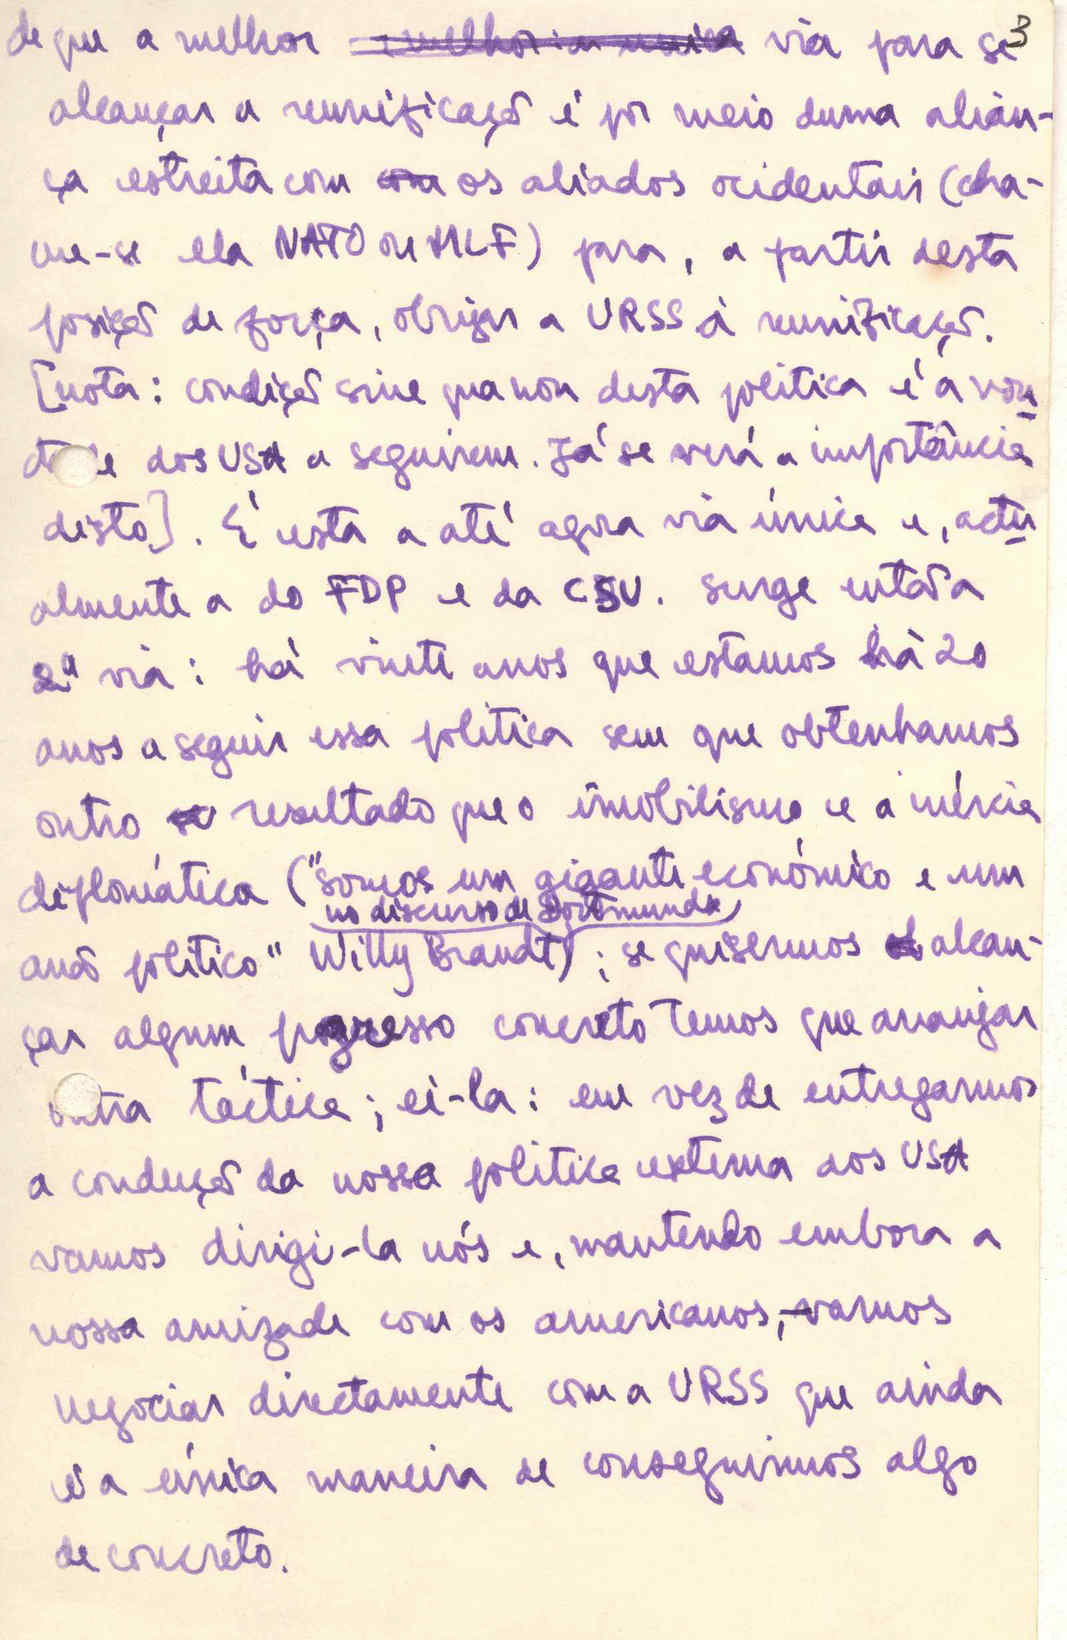 3
de que a melhor via para se
alcançar a reunificação é por meio duma alian-
ça estreita com os aliados ocidentais (cha-
me-se ela NATO ou MLF) para, a partir desta
posição de força, obrigar a URSS à reunificação.
[nota: condição sine qua non desta politica é a von
tade dos USA a seguirem. Já se verá a importância
disto]. É esta a até agora via única e, actu
almente a do FDP e da CSU. Surge então a
2ª via: há vinte anos que estamos há 20
anos a seguir essa politica sem que obtenhamos
outro resultado que o imobilismo e a inércia
diplomática ("somos um gigante económico e um
no discurso de Dortmunda
anão politico" Willy Brandt); se quisermos alcan-
çar algum progresso concreto temos que arranjar
outra táctica; ei-la: em vez de entregarmos
a condução da nossa politica externa aos USA
vamos dirigi-la nós e, mantendo embora a
nossa amizade com os americanos, vamos
negociar directamente com a URSS que ainda
é a única maneira de conseguirmos algo
de concreto.